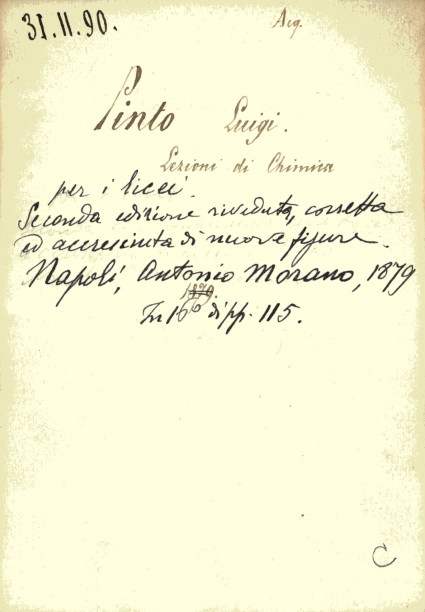 31.11.90.
Acq.
Pinto Luigi.
Lezioni di Chimica
per i licei.
Seconda edizione riveduta, corretta
ed accresciuta di nuove figure.
Napoli, Antonio Morano, 1879
1879
In 16º di pp. 115.
C